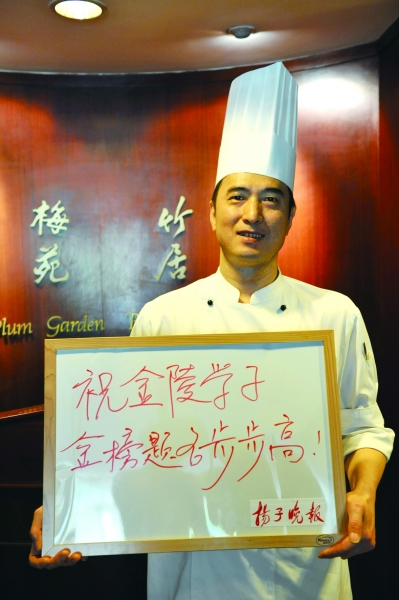 梅苑
竹居
Plum Garden
祝金陵学子
金榜题名步步高!
扬子晚报